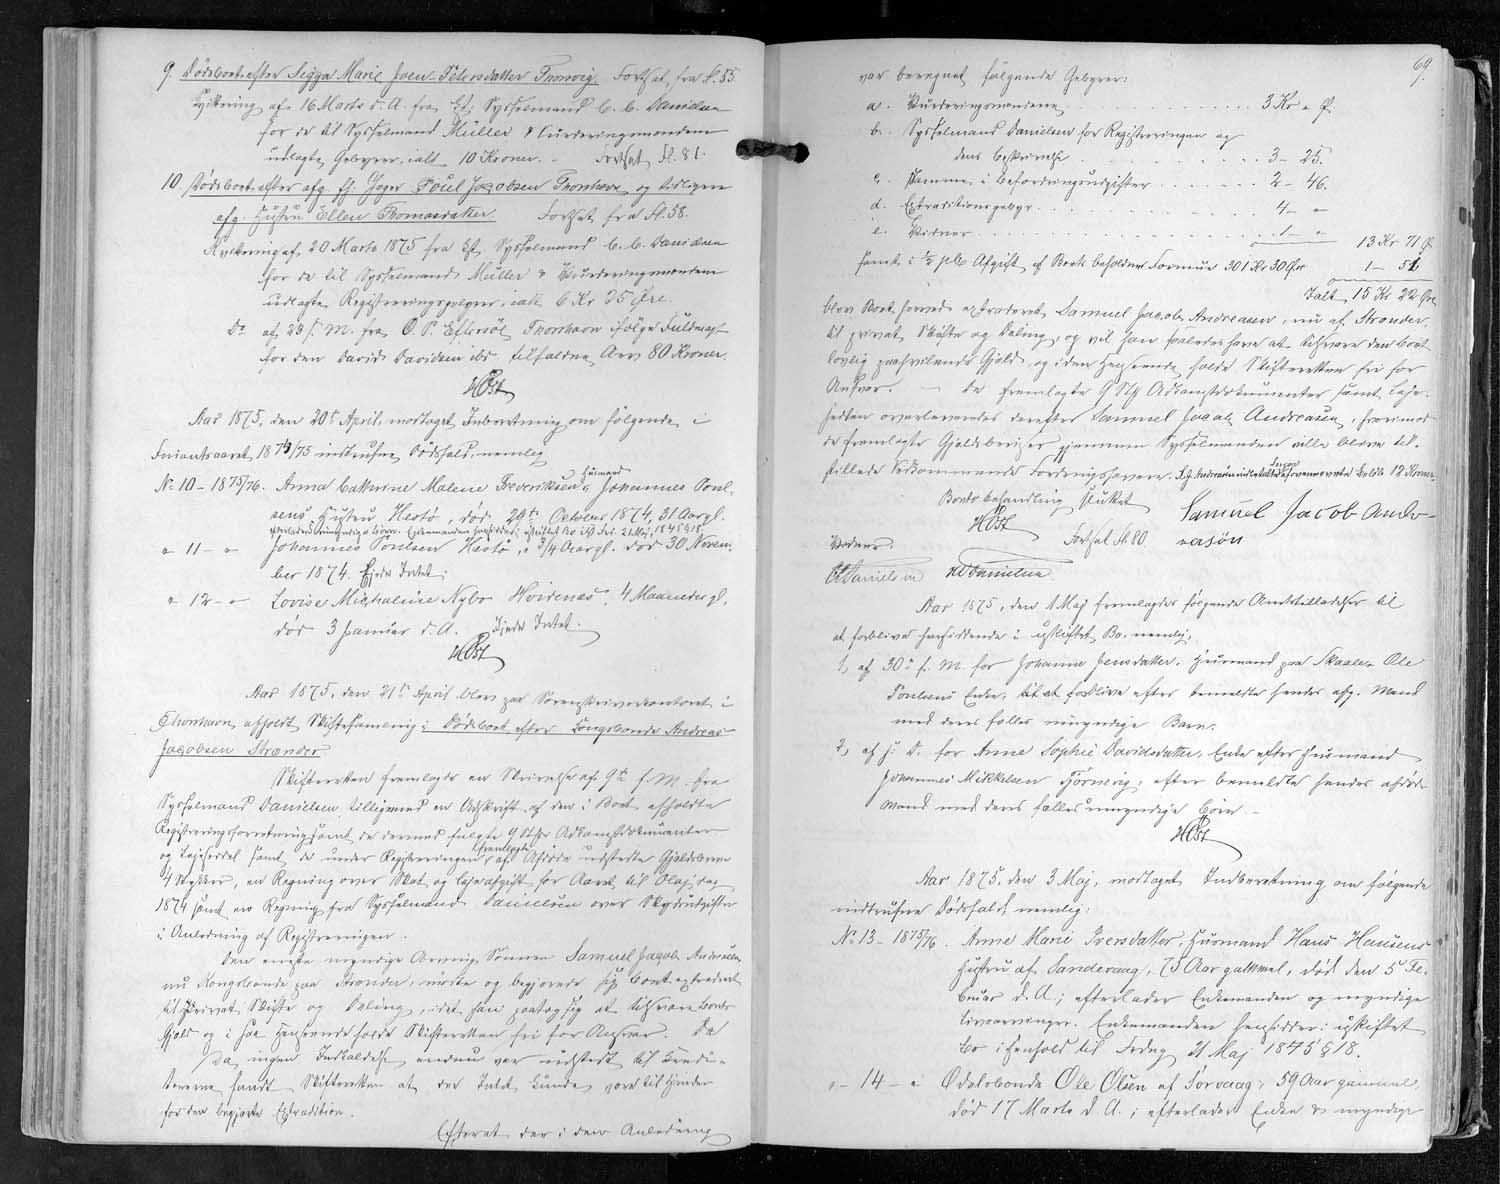 9. Dødsboet efter Sigga Marie Joen-Petersdatter Thorsvig. Fortsat fra fl. 55
Kvittering af 16 Marts d. A. fra Cst. Sysselmand C. C. Danielsen
for de til Sysselmand Müller & Vurderingsmændene
udlagte Gebyrer, ialt 10 Kroner. - Fortsat fl. 81.
10. Dødsboet efter afg. Poul Jacobsen Thorshavn og tidligere
afg. Hustru Ellen Thomasdatter. Fortsat fra fl. 58.
Kvittering af 20 Marts 1875 fra Cst. Sysselmand C. C. Danielsen
for de til Sysselmand Müller & Vurderingsmændene
udlagte Registreringsgebyrer, ialt 6 Kr 35 Øre.
Do af 23 f. M. fra O. P. Effersöe Thorshavn ifølge Fuldmagt
for den David Davidsen ibd. tilfaldne Arv 80 Kroner.
HOst
Aar 1875, den 20de April, modtaget Indberetning om følgende i
Finantsaaret 1874/75 indtrufne Dødsfald, nemlig
No 10 - 1875/76. Anna Cathrine Malene Frederiksen, Husmand Johannes Poul-
sens Hustru Hestø, død 29de October 1874, 31 Aar gl.
Efterlader umyndige Børn. Enkemanden hensidder i uskiftet Bo ifl. Frd. 21 Maj 1845 § 18.
" 11 - " Johannes Poulsen Hestø, 3/4 Aar gl. død 30 Novem-
ber 1874. Ejede Intet.
" 12 - " Lovise Michaline Nybo Hvidenæs, 4 Maaneder gl,
død 3 Januar d. A. Ejede Intet.
HOst
Aar 1875, den 21de April blev paa Sorenskriverkontoret i
Thorshavn afholdt Skiftesamling i Dødsboet efter Kongsbonde Andreas
Jacobsen Strænder
Skifteretten fremlagde en Skrivelse af 9de f. M. fra
Sysselmand Danielsen tilligemed en Udskrift af den i Boet afholdte
Registreringsforretning samt de dermed fulgte 9 Stkr Adkomstdokumenter
og Lejeseddel samt de under Registreringen fremlagte af Afdøde udstedte Gjældsbeviser
4 Stykker, en Regning over Skat og Lejeafgift for Aaret til Olaj dag
1874 samt en Regning fra Sysselmand Danielsen over Skydsudgifter
i Anledning af Registreringen.
Den eneste myndige Arving Sønnen Samuel Jacob Andreasen
nu Kongsbonde paa Strænder, mødte og begjærede sig Boet extraderet
til privat Skifte og Deling, idet han paatog sig at tilsvare Boets
Gjæld og i saa Henseende holde Skifteretten fri for Ansvar. Da
Da ingen Indkaldelse endnu var udstedt til Kredi-
torerne fandt Skifteretten at der Intet kunde være til Hinder
for den begjærte Extradition.
Efterat der i den Anledning
69.
var beregnet følgende Gebyrer:
a. Vurderingsmændene . . . 3 Kr " Ø.
b. Sysselmand Danielsen for Registreringen og
dens Beskrivelse . . . 3 - 25.
c. Samme i Befordringsudgifter . . . 2 - 46.
d. Extraditionsgebyr . . . 4 - "
e. Vidner . . . 1 - "
13 Kr 71 Ø.
samt i ½ pCt Afgift af Boets beholdne Formue 301 Kr 30 Øre 1 - 51
Ialt 15 Kr 22 Øre
blev Boet herved extraderet Samuel Jacob Andreasen, nu af Strænder,
til privat Skifte og Deling, og vil han saaledes have at tilsvare den Boet
lovlig paahvilende Gjæld og i den Henseende holde Skifteretten fri for
Ansvar. - De fremlagte 9 Stk Adkomstdokumenter samt Leje-
sedlen overleveredes derefter Samuel Jacob Andreasen, hvorimod
de fremlagte Gjældsbeviser gjennem Sysselmanden ville blive til-
stillede Vedkommende Fordringshavere.
Boets behandling sluttet
HOst
Fortsat fl. 80
Samuel Jacob Andr-
easøn
Vidner:
Danielsen Danielsen
Aar 1875, den 1 Maj fremlagdes følgende Amtstilladelser til
at forblive hensiddende i uskiftet Bo, nemlig:
1, af 30te f. M. for Johanne Jensdatter, Husmand paa Skaalen Ole
Poulsens Enke, til at forblive efter bemeldte hendes afg. Mand
med deres fælles umyndige Barn.
2, af s. D. for Anne Sophie Davidsdatter, Enke efter Husmand
Johannes Mikkelsen Tjørnevig, efter bemeldte hendes afdøde
Mand med deres fælles umyndige Børn. -
HOst
Aar 1875, den 3 Maj, modtaget Indberetning om følgende
indtrufne Dødsfald nemlig:
No 13 - 1875/76. Anne Marie Iversdatter, Husmand Hans Hansens
Hustru af Sandevaag, 75 Aar gammel, død den 5 Fe-
bruar d. A.; efterlader Enkemanden og myndige
Livsarvinger. Enkemanden hensidder i uskiftet
Bo i Henhold til Frdng 21 Maj 1845 § 18.
" - 14 - " Odelsbonde Ole Olsen af Sørvaag, 59 Aar gammel,
død 17 Marts d. A.; efterlader Enke & myndige